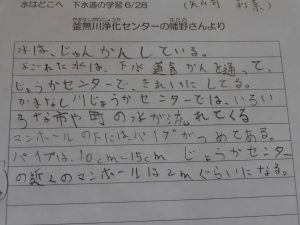 水はどこへ 下水道の学習 6/28
かまなしがわじょうか はたの
釜無川浄化センターの幡野さんより
水は、じゅんかんしている。
よごれた水は、下水道かんを通って、
じょうかセンターで、きれいにしてる。
かまなし川じょうかセンターでは、いろい
ろな市や町の水が流れてくる
マンホールの下にはパイプがつめてある。
パイプは、10cm〜15cm じょうかセンター
の近くのマンホールは2mぐらいになる。